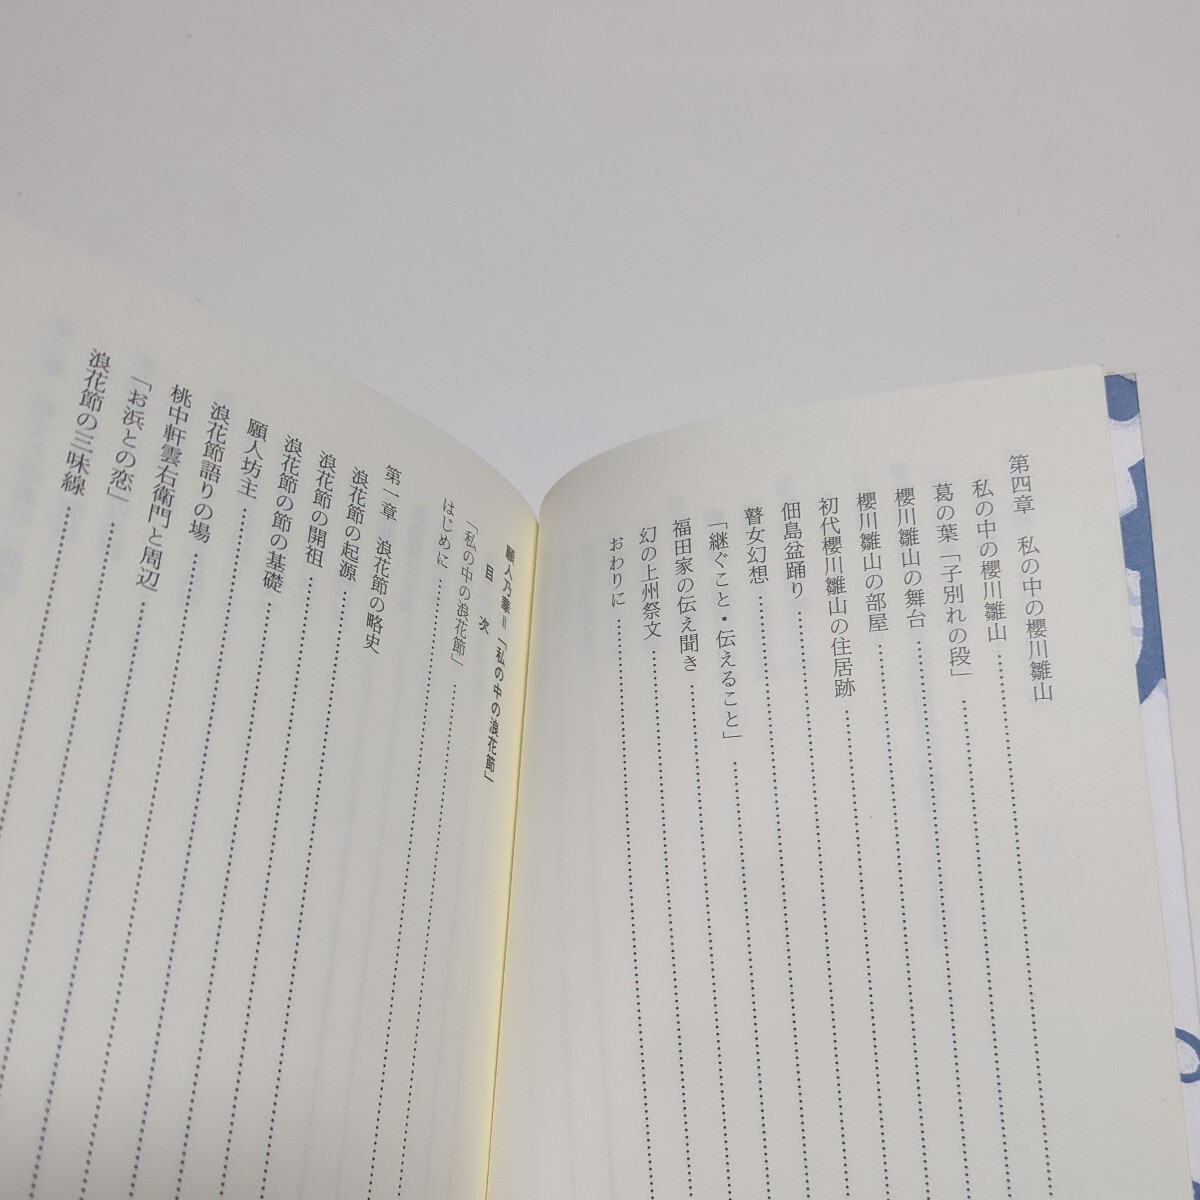 第四章　私の中の櫻川雛山
私の中の櫻川雛山
葛の葉「子別れの段」
櫻川雛山の舞台
櫻川雛山の部屋
初代櫻川雛山の住居跡
佃島盆踊り
瞽女幻想
「継ぐこと・伝えること」
福田家の伝え聞き
幻の上州祭文
おわりに
願人乃華＝「私の中の浪花節」
目　次
「私の中の浪花節」
はじめに
第一章　浪花節の略史
浪花節の起源
浪花節の開祖
浪花節の節の基礎
願人坊主
浪花節語りの場
桃中軒雲右衛門と周辺
「お浜との恋」
浪花節の三味線